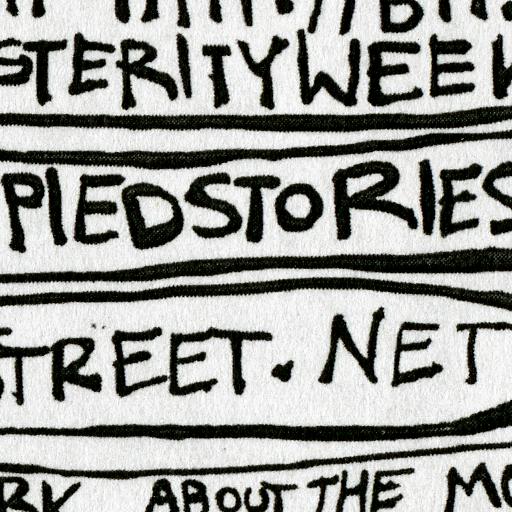 STERITYWEEK
PIEDSTORIES
STREET.NET
RK ABOUT THE MO